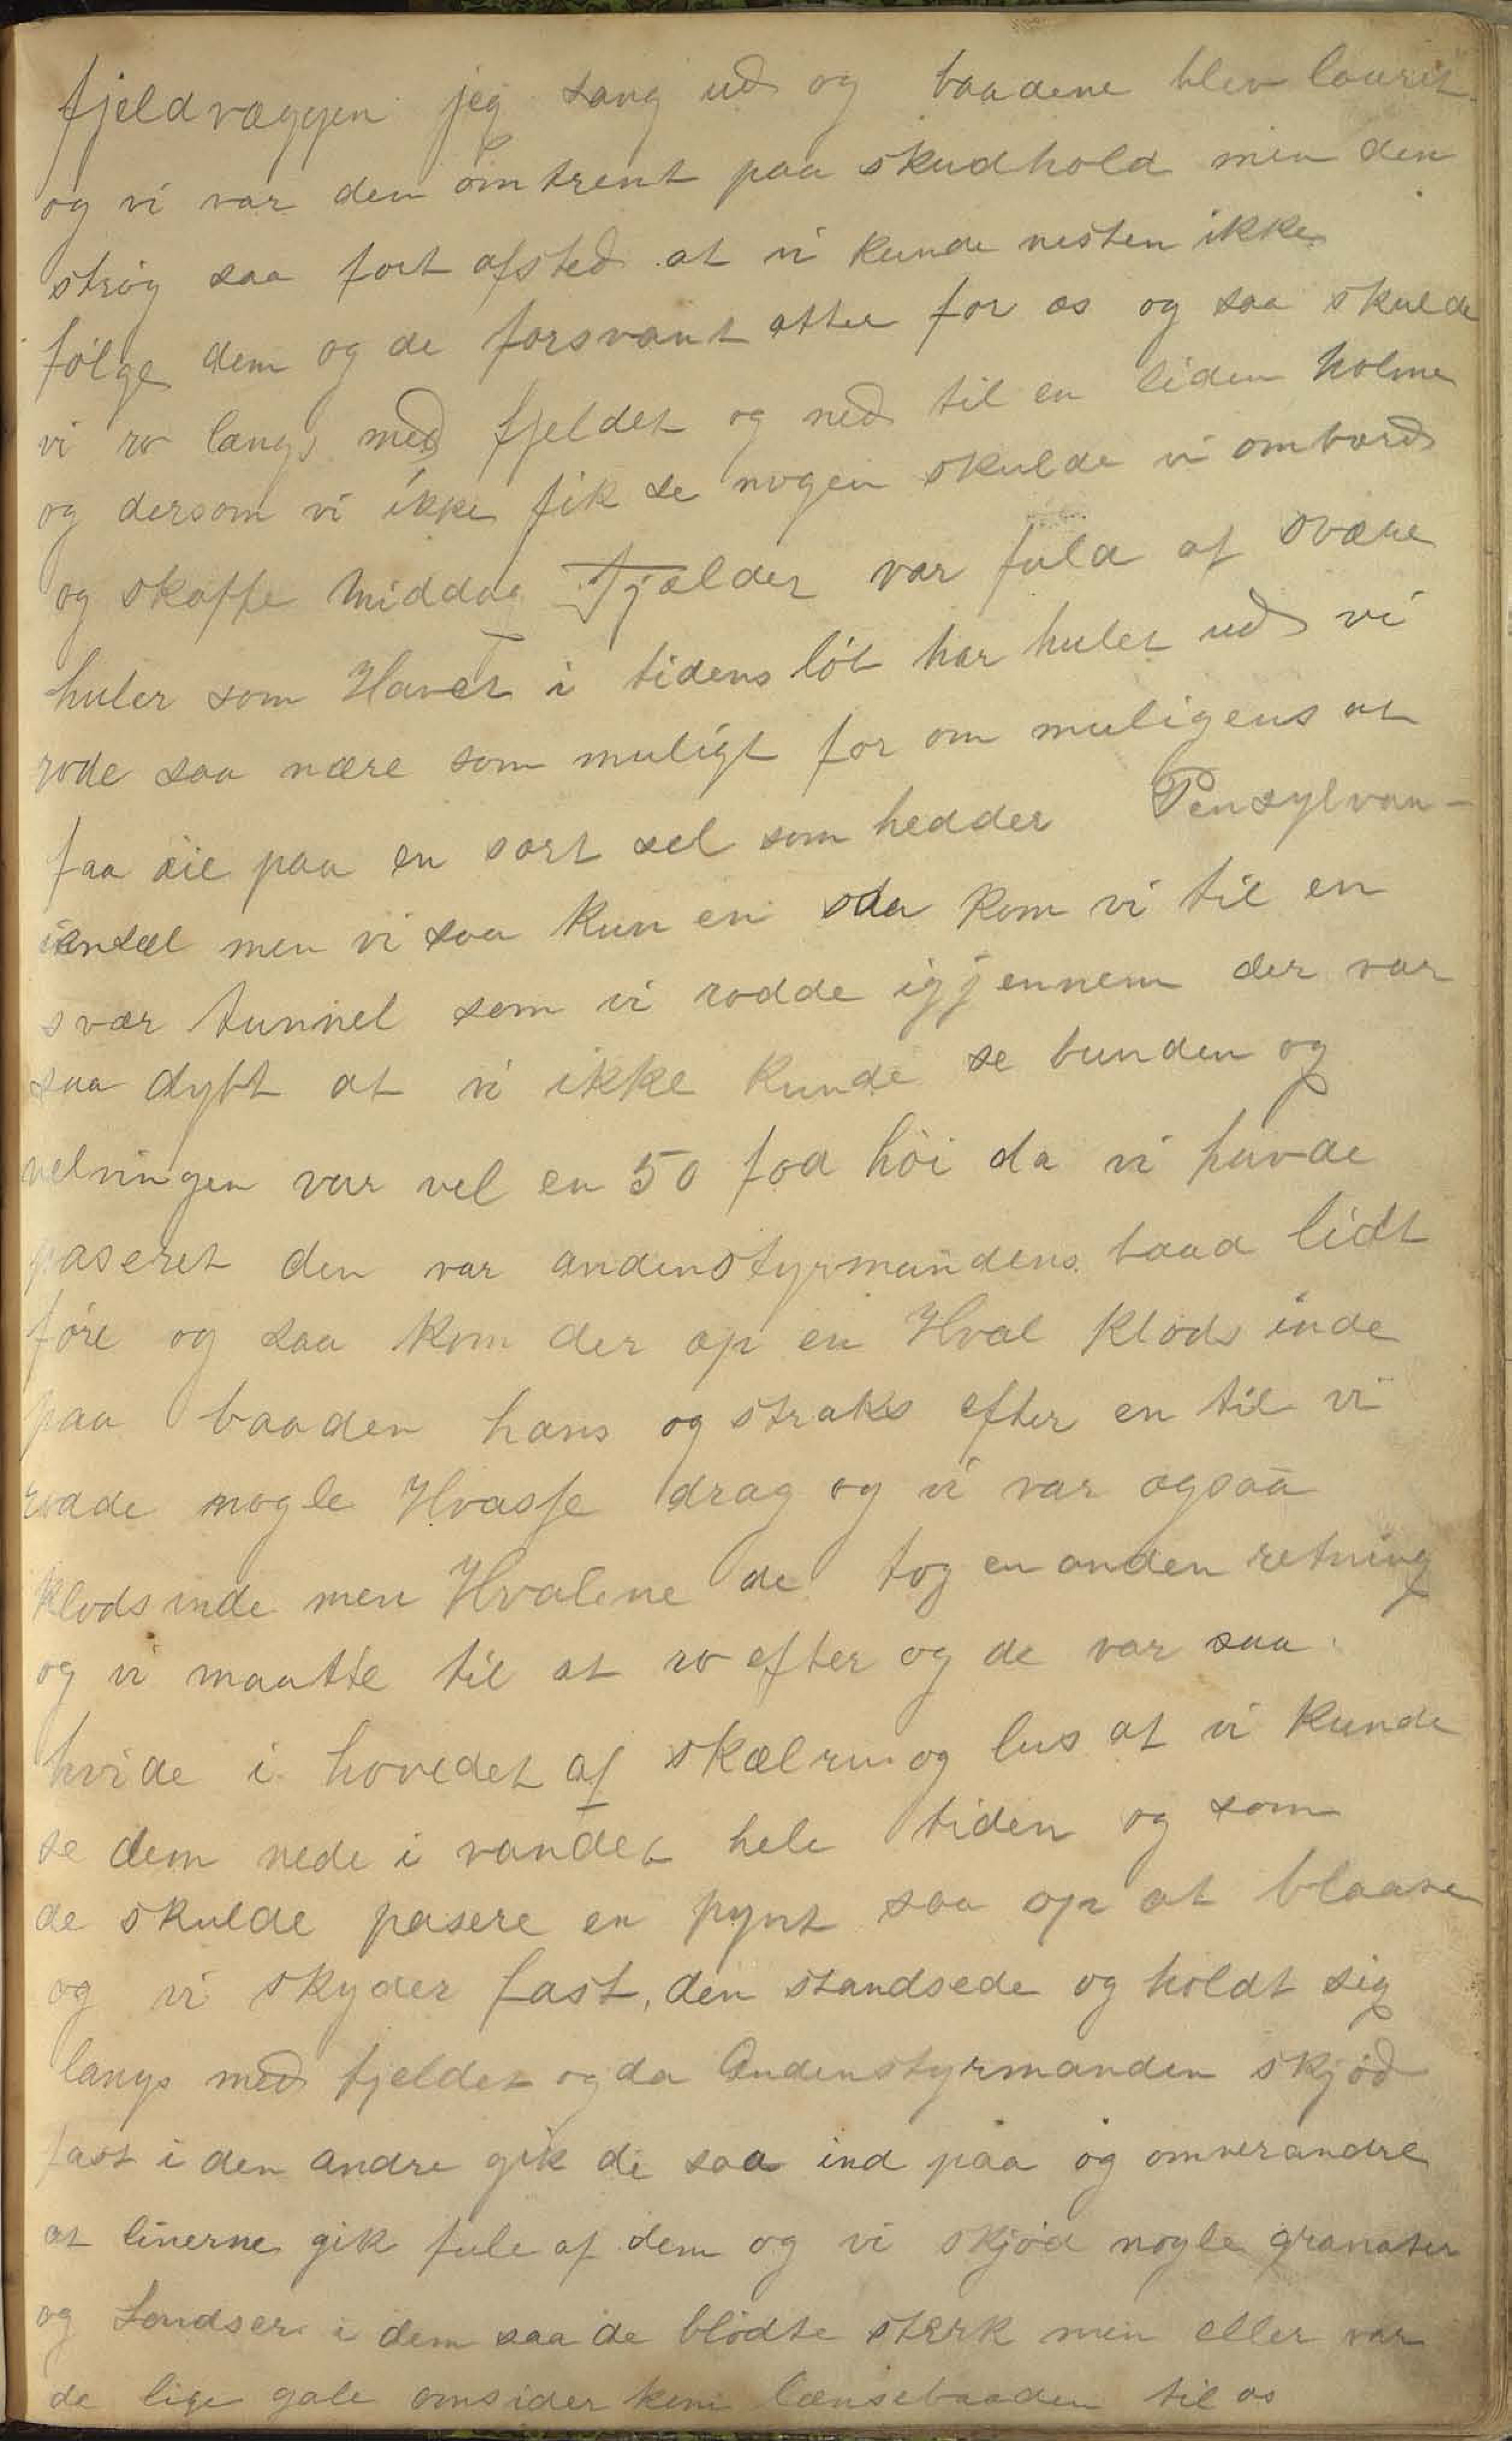 fjeldvæggen jeg sang ud og baadene blev lauret
og vi var dem omtrent paa skudhold men den
strøg saa fort afsted at vi kunde nesten ikke
følge dem og de forsvant atter for os og saa skulde
vi ro langs med fjeldet og ned til en liden holme
og dersom vi ikke fik se nogen skulde vi ombord
og skaffe middag Fjeldet var fuld af svære
huler som Havet i tidens løb har hulet ud vi
rode saa nære som muligt for om muligens at
faa øie paa en sort sel som hedder Pensylvan-
iensæl men vi saa kun en saa kom vi til en
svær tunnel som vi rodde igjennem der var
saa dybt at vi ikke kunde se bunden og
velvingen var vel en 50 fod høi da vi havde
paseret den var andenstyrmandens baad lidt
føre og saa kom der op en Hval klods inde
paa baaden hans og straks efter en til vi
rodde nogle Hvasse drag og vi var ogsaa
klods inde men Hvalene de tog en anden retning
og vi maatte til at ro efter og de var saa
hvide i hovedet af skælrur og lus at vi kunde
se dem nede i vandet hele tiden og som
de skulde pasere en pynt saa op at blaase
og vi skyder fast, den standsede og holdt sig
langs med fjeldet og da Andenstyrmanden skjød
fast i den andre gik de saa ind paa og omverandre
at linerne gik fule af dem og vi skjød nogle granater
og Landser i dem saa de blødte sterk men eller var
de lige gale omsider kom lænsebaaden til os